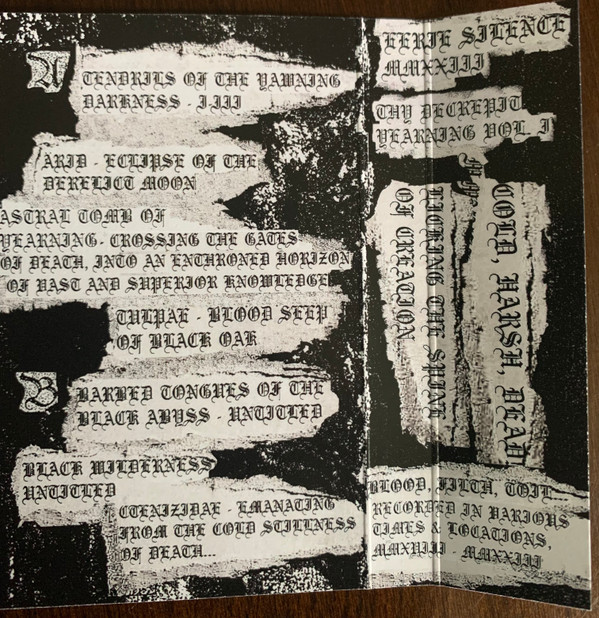 A
TENDRILS OF THE YAWNING
DARKNESS - I.III
ARID - ECLIPSE OF THE
DERELICT MOON
ASTRAL TOMB OF
YEARNING - CROSSING THE GATES
OF DEATH, INTO AN ENTHRONED HORIZON
OF VAST AND SUPERIOR KNOWLEDGE
TULPAE - BLOOD SEEP
OF BLACK OAK
B
BARBED TONGUES OF THE
BLACK ABYSS - UNTITLED
BLACK WILDERNESS
UNTITLED
CTENIZIDAE - EMANATING
FROM THE COLD STILLNESS
OF DEATH...
EERIE SILENCE
MMXXIII
THY DECREPIT
YEARNING VOL. I
COLD, HARSH, DEAD
LICKING THE SPINE
OF CREATION
BLOOD, FILTH, TOIL
RECORDED IN VARIOUS
TIMES & LOCATIONS,
MMXVIII - MMXXIII